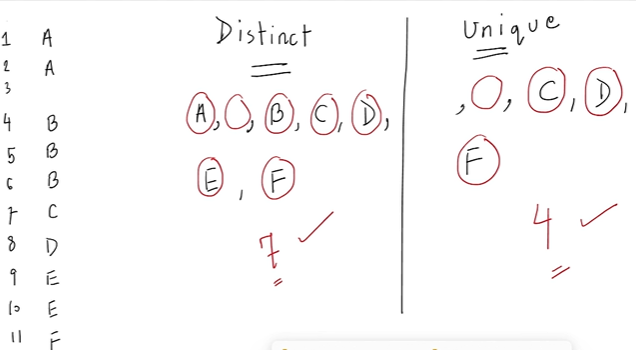 1 A
2 A
3
4 B
5 B
6 B
7 C
8 D
9 E
10 E
11 F
Distinct
A, , B, C, D,
E, F
7
Unique
, , C, D,
F
4